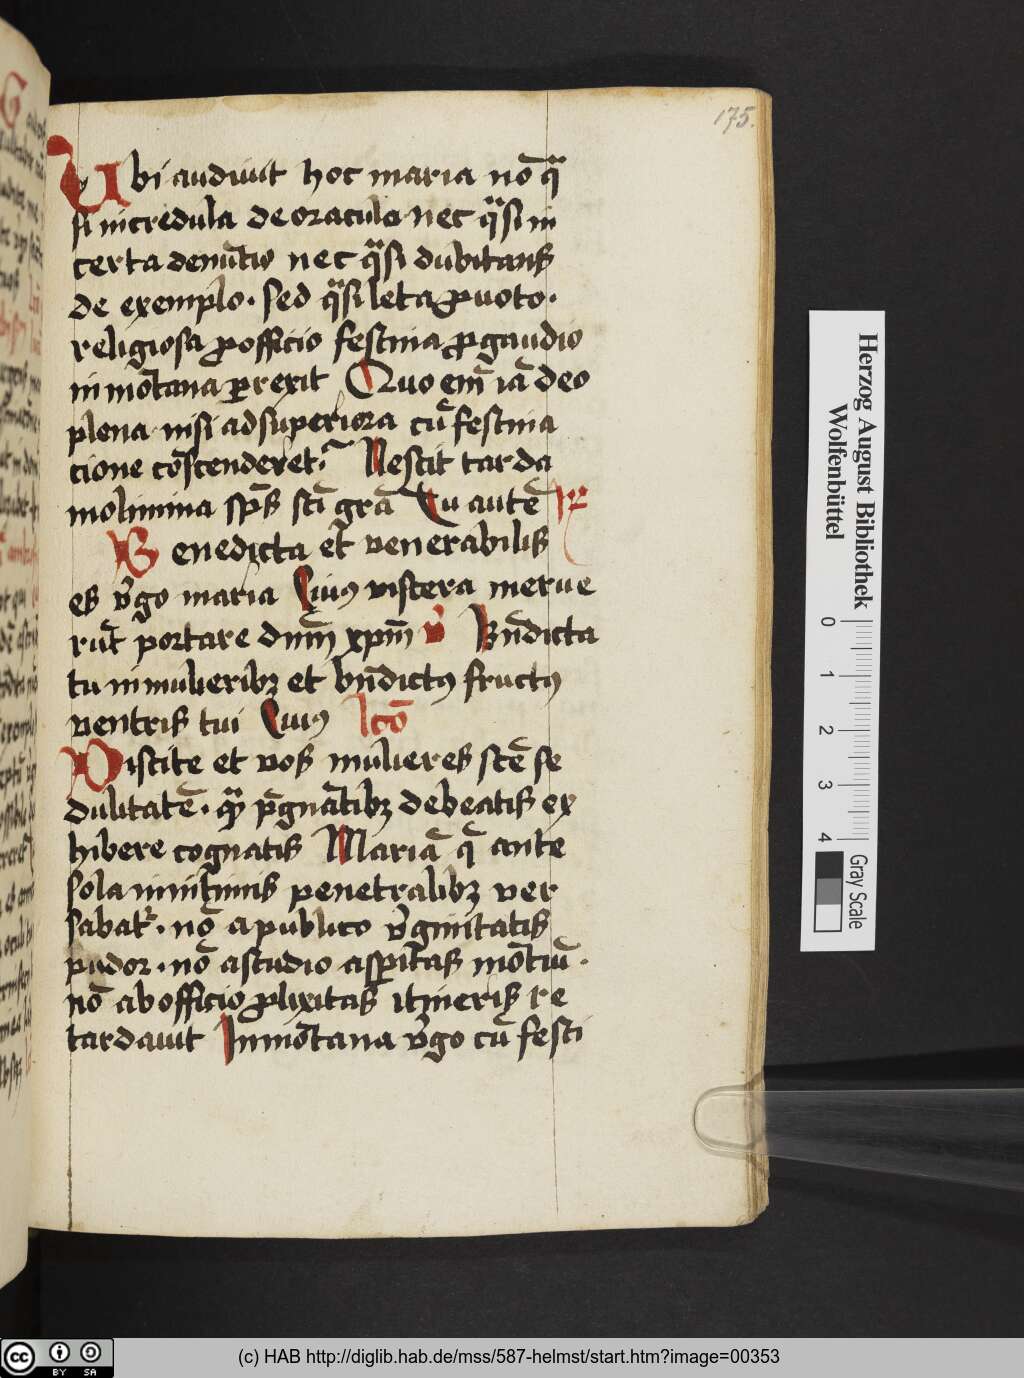 175.
Ubi audiuit hoc maria nō qͣ
si incredula de oraculo nec qͣsi in
certa denūtio nec qͣsi dubitans
de exemplo. sed qͣsi leta ꝓ uoto.
religiosa ꝓ officio festina ꝓ gaudio
in mōtana ꝑrexit Quo em̄ iā deo
plena nisi ad superiora cū festina
cione cōscenderet. Nescit tarda
molimina sp̄s sc̄i grā Tu autē ℞
Benedicta et̄ venerabilis
es v̄go maria Cuiꝰ viscera merue
rūt portare dn̄m xp̄m v̄ Bn̄dicta
tu in mulieribꝫ et bn̄dictꝰ fructꝰ
ventris tui Cuiꝰ lc̄o
Discite et vos mulieres sc̄e se
dulitatē. qͣꝫ p̄gnātibꝫ debeatis ex
hibere cognatis Mariā q̄ ante
sola in intimis penetralibꝫ ver
sabat᷑. nō a publico v̄ginitatis
pudor. nō a studio asꝑitas mōtiū.
nō ab officio ꝓlixitas itineris re
tardauit In mōtana v̄go cū festi
Herzog August Bibliothek
Wolfenbüttel
0 1 2 3 4
Gray Scale
CC BY SA
(c) HAB http://diglib.hab.de/mss/587-helmst/start.htm?image=00353